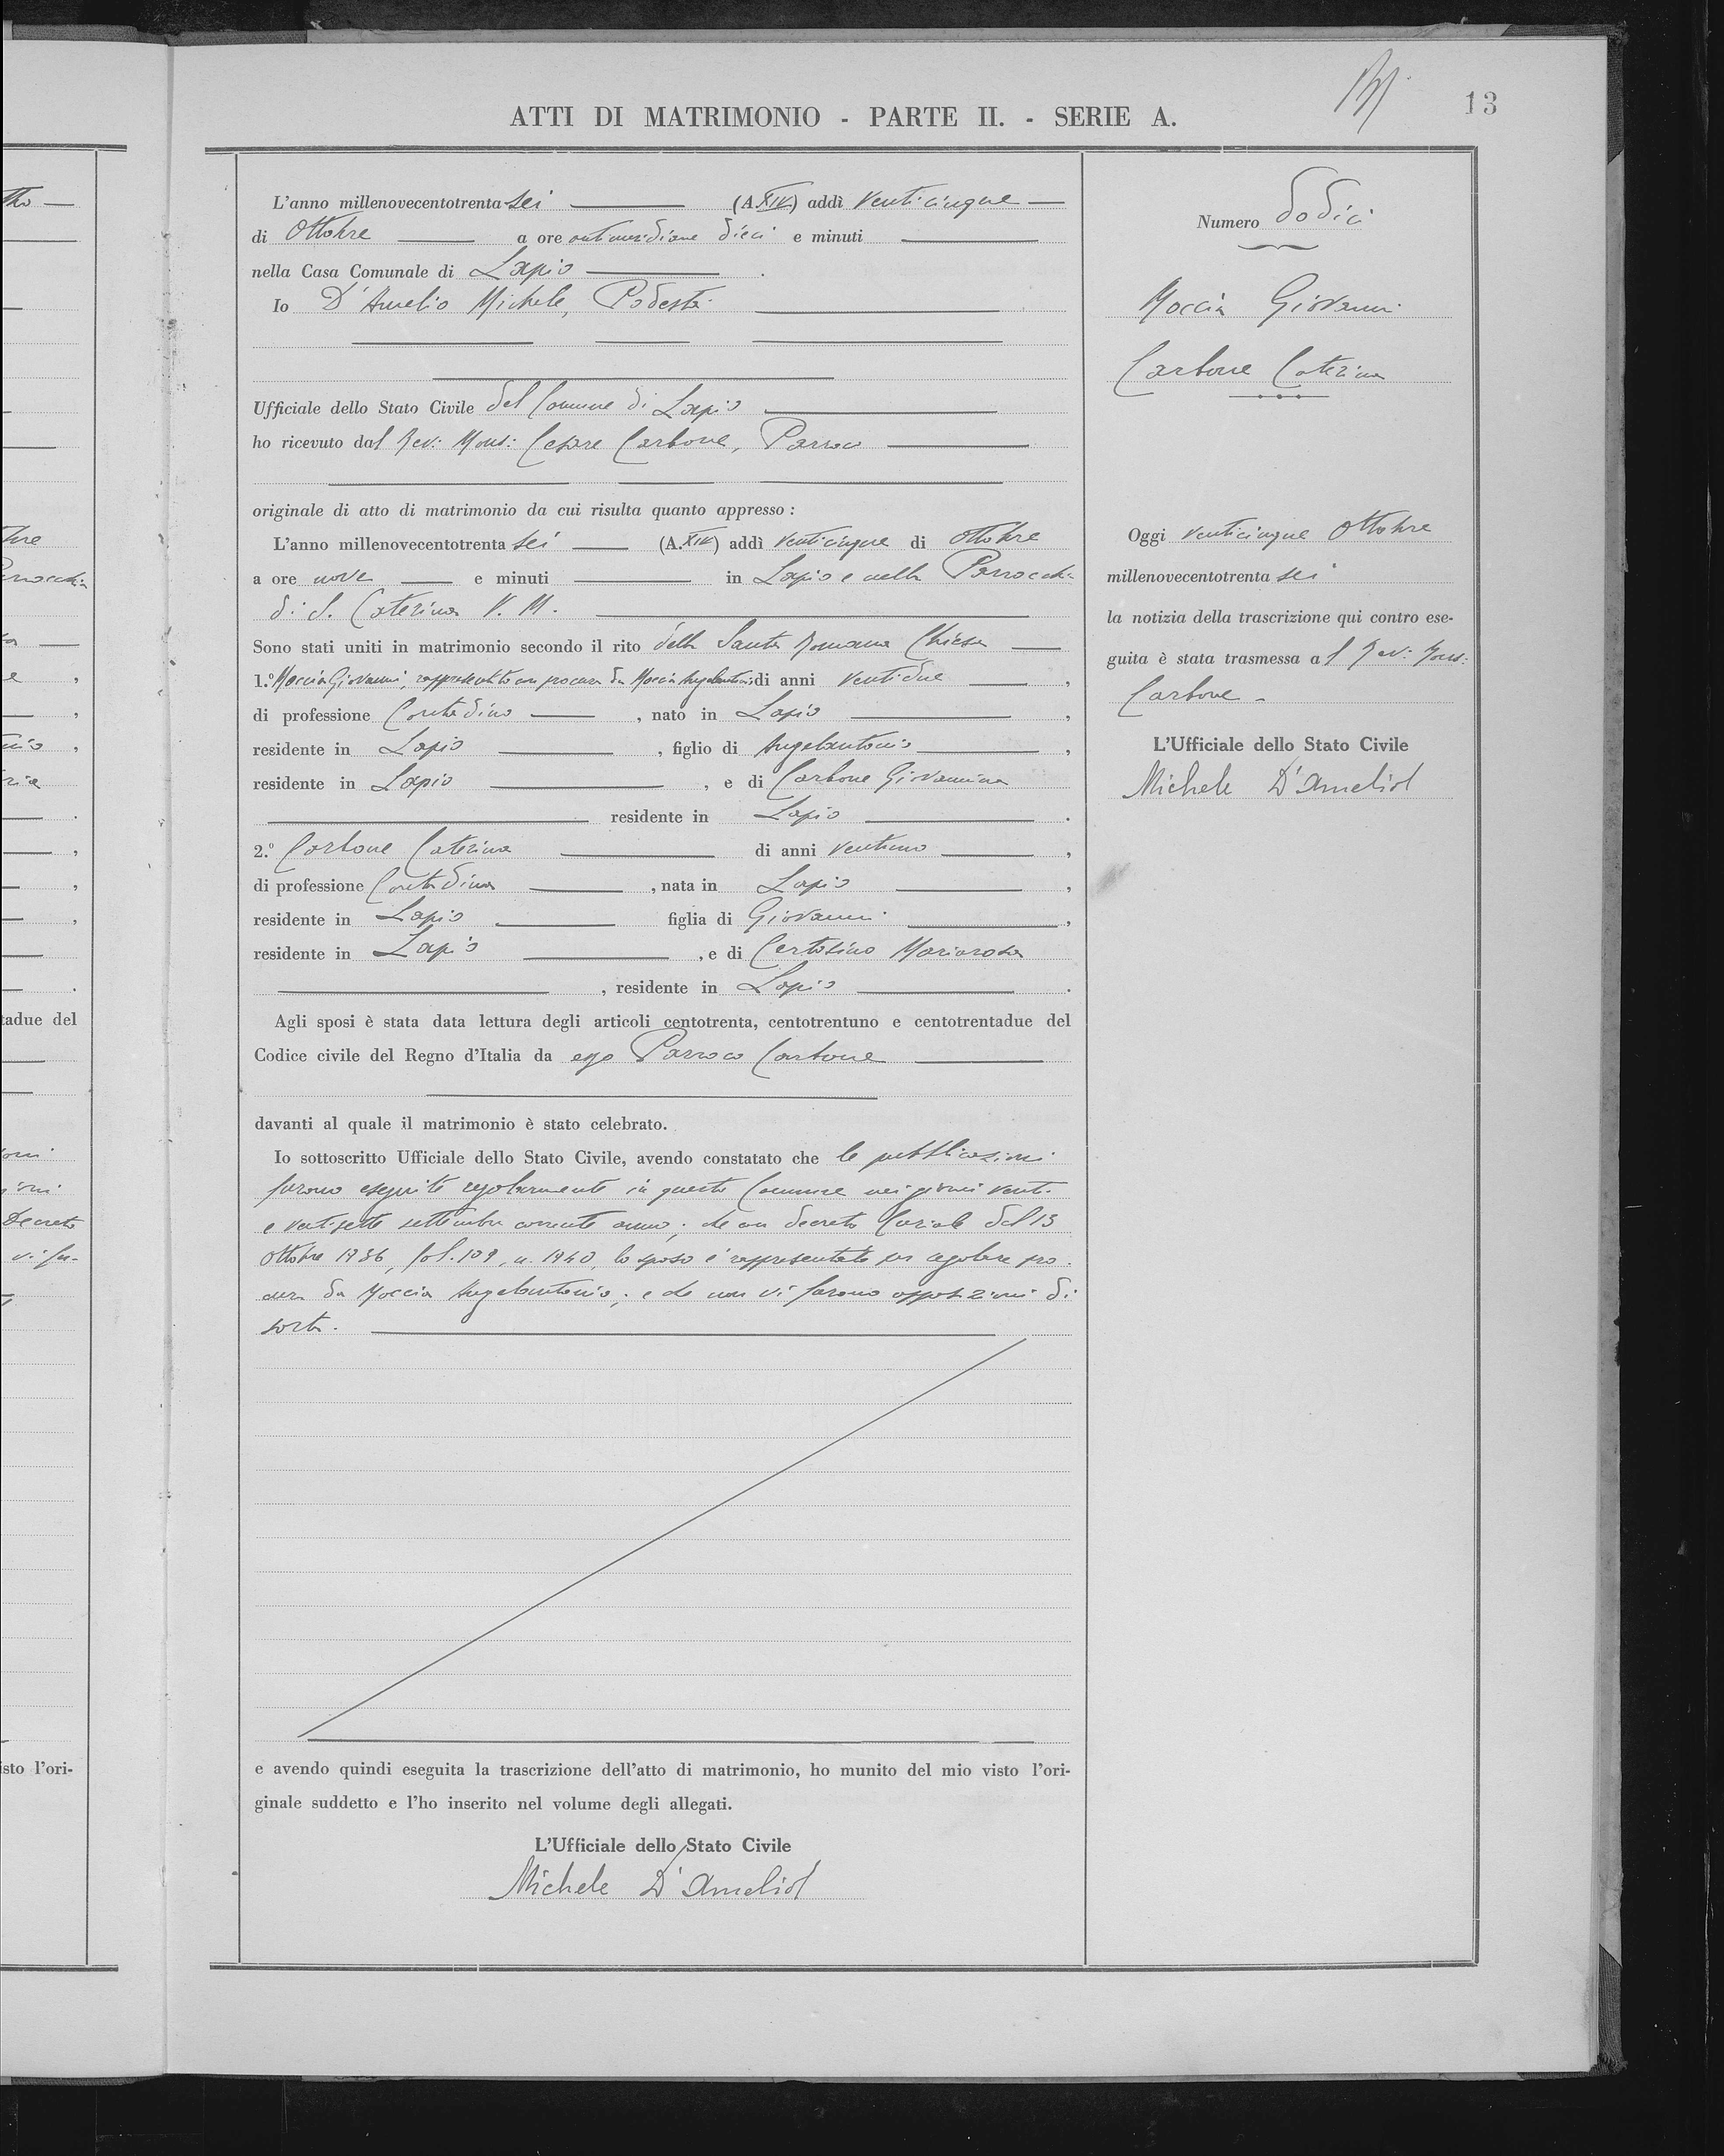 ATTI DI MATRIMONIO - PARTE II. - SERIE A.
13
L'anno millenovecentotrenta sei (A. XIV) addì venticinque
di Ottobre a ore antimeridiane dieci e minuti
nella Casa Comunale di Lapio.
Io D'Amelio Michele, Podestà
Ufficiale dello Stato Civile del Comune di Lapio
ho ricevuto dal Rev: Mons: Cesare Carbone, Parroco
originale di atto di matrimonio da cui risulta quanto appresso:
L'anno millenovecentotrenta sei (A. XIV) addì venticinque di Ottobre
a ore nove e minuti in Lapio e nella Parrocchia
di S. Caterina V. M.
Sono stati uniti in matrimonio secondo il rito della Santa Romana Chiesa
1.º Moccia Giovanni, rappresentato con procura da Moccia Angelantonio di anni ventidue,
di professione Contadino, nato in Lapio,
residente in Lapio, figlio di Angelantonio,
residente in Lapio, e di Carbone Giovannina
residente in Lapio.
2.º Carbone Caterina di anni ventuno,
di professione Contadina, nata in Lapio,
residente in Lapio figlia di Giovanni,
residente in Lapio, e di Certosino Mariarosa
, residente in Lapio.
Agli sposi è stata data lettura degli articoli centotrenta, centotrentuno e centotrentadue del
Codice civile del Regno d'Italia da ego Parroco Carbone
davanti al quale il matrimonio è stato celebrato.
Io sottoscritto Ufficiale dello Stato Civile, avendo constatato che le pubblicazioni
furono eseguite regolarmente in questo Comune nei giorni venti
e ventisette settembre corrente anno; che con decreto Curiale del 13
Ottobre 1936, fol. 109, n. 1940, lo sposo è rappresentato per regolare pro-
cura da Moccia Angelantonio; e che non vi furono opposizioni di
sorta.
e avendo quindi eseguita la trascrizione dell'atto di matrimonio, ho munito del mio visto l'ori-
ginale suddetto e l'ho inserito nel volume degli allegati.
L'Ufficiale dello Stato Civile
Michele D'Amelio
Numero dodici
Moccia Giovanni
Carbone Caterina
Oggi venticinque Ottobre
millenovecentotrenta sei
la notizia della trascrizione qui contro ese-
guita è stata trasmessa al Rev: Mons:
Carbone -
L'Ufficiale dello Stato Civile
Michele D'Amelio